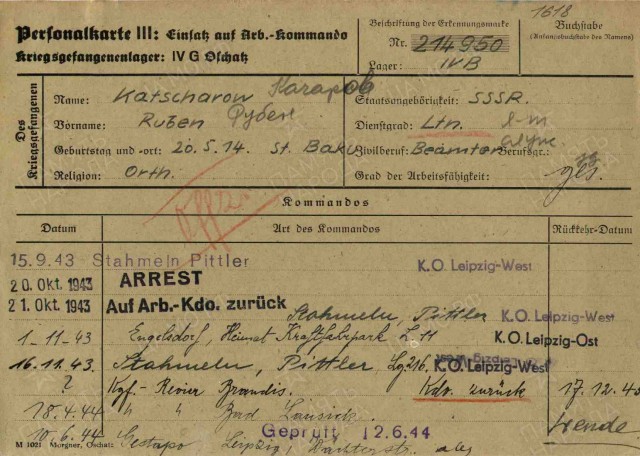 1618
Personalkarte III: Einsatz auf Arb.-Kommando
Kriegsgefangenenlager: IV G Oschatz
Beschriftung der Erkennungsmarke
Nr. 214950
Lager: IVB
Buchstabe
(Anfangsbuchstabe des Namens)
Des Kriegsgefangenen
Name: Katscharow
Vorname: Ruben Рубен
Geburtstag und -ort: 20.5.14. St. Baku
Religion: Orth.
Staatsangehörigkeit: SSSR.
Dienstgrad: Ltn. л-т
Zivilberuf: Beamter Berufsgr.:
Grad der Arbeitsfähigkeit:
Kommandos
Datum Art des Kommandos Rückkehr-Datum
15.9.43 Stahmeln Pittler K.O. Leipzig-West
20. Okt. 1943 ARREST
21. Okt. 1943 Auf Arb.-Kdo. zurück Stahmeln, Pittler K.O. Leipzig-West
1-11-43 Engelsdorf, Heimat Kraftfahrpark L 11 K.O. Leipzig-Ost
16.11.43. Stahmeln, Pittler, Lg 216. K.O. Leipzig-West
? Kgf.-Revier Brandis. Kdo. zurück 17.12.43
18.4.44 " " Bad Lausick. Wende
10.6.44 Gestapo Leipzig, Wächterstr.
Geprüft 12.6.44
M 1021 Morgner, Oschatz